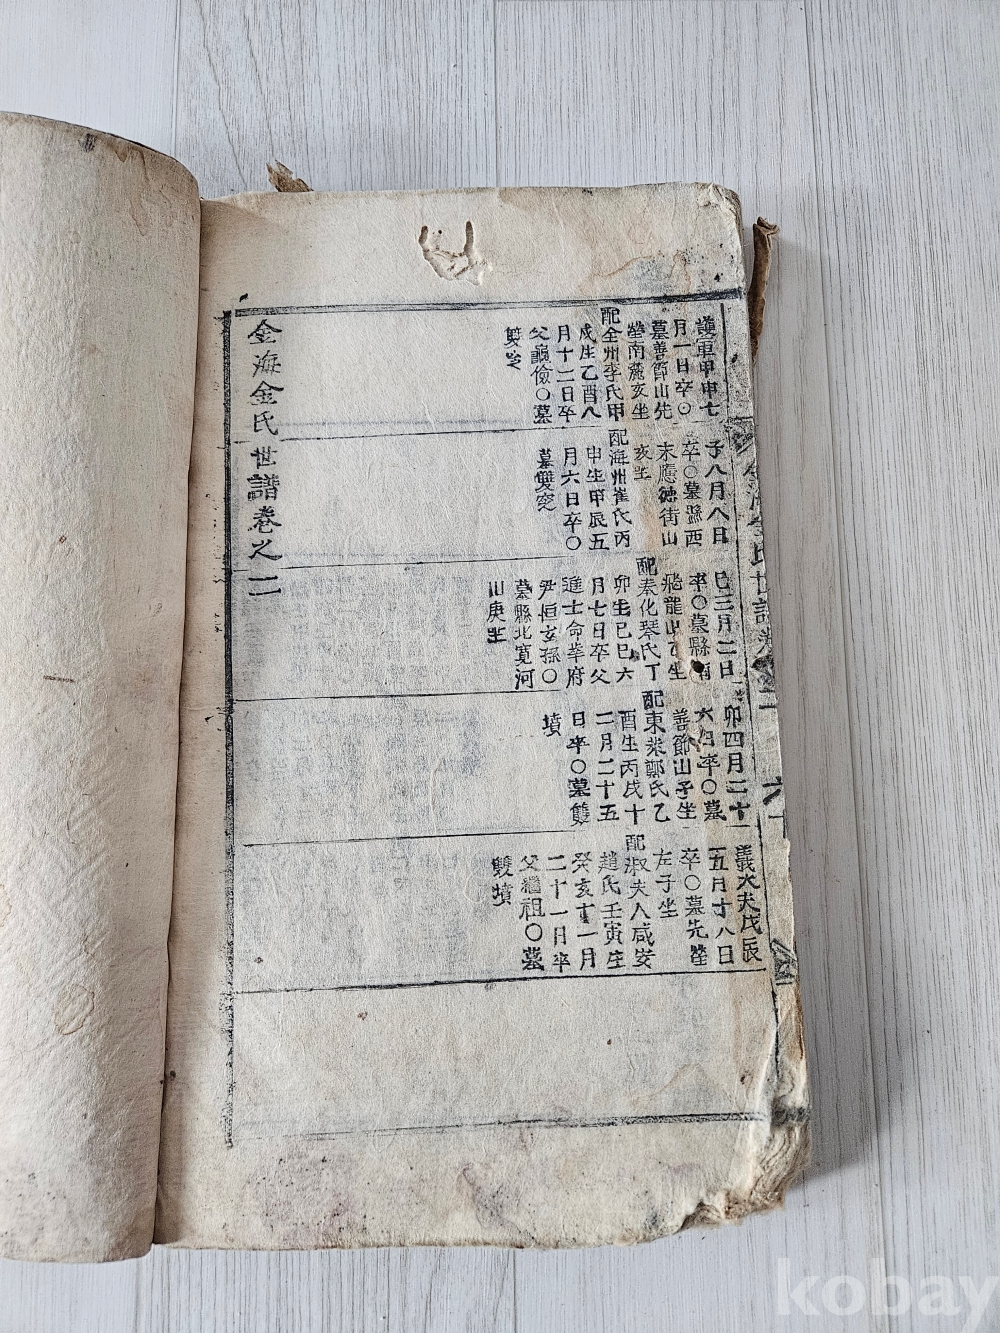 護軍甲申七
月一日卒〇
墓善節山先
塋南麓亥坐
配全州李氏甲
戌生乙酉八
月十二日卒
父鼴儉〇墓
雙墳
子八月八日
卒〇墓縣西
末應德街山
亥坐
配海州崔氏丙
申生甲辰五
月六日卒〇
墓雙窆
巳三月二日
卒〇墓縣南
飛龍山 坐
配奉化琴氏丁
卯生己巳六
月七日卒父
進士命華府
尹恒玄孫〇
墓縣北寬河
山庚坐
卯四月二十
六日卒〇墓
善節山子坐
配東萊鄭氏乙
酉生丙戌十
二月二十五
日卒〇墓雙
墳
義大夫戊辰
五月十八日
卒〇墓先塋
左子坐
配淑夫人咸安
趙氏壬寅生
癸亥十一月
二十一日卒
父繼祖〇墓
雙墳
金海金氏世譜卷之二
金海金氏世譜卷
kobay